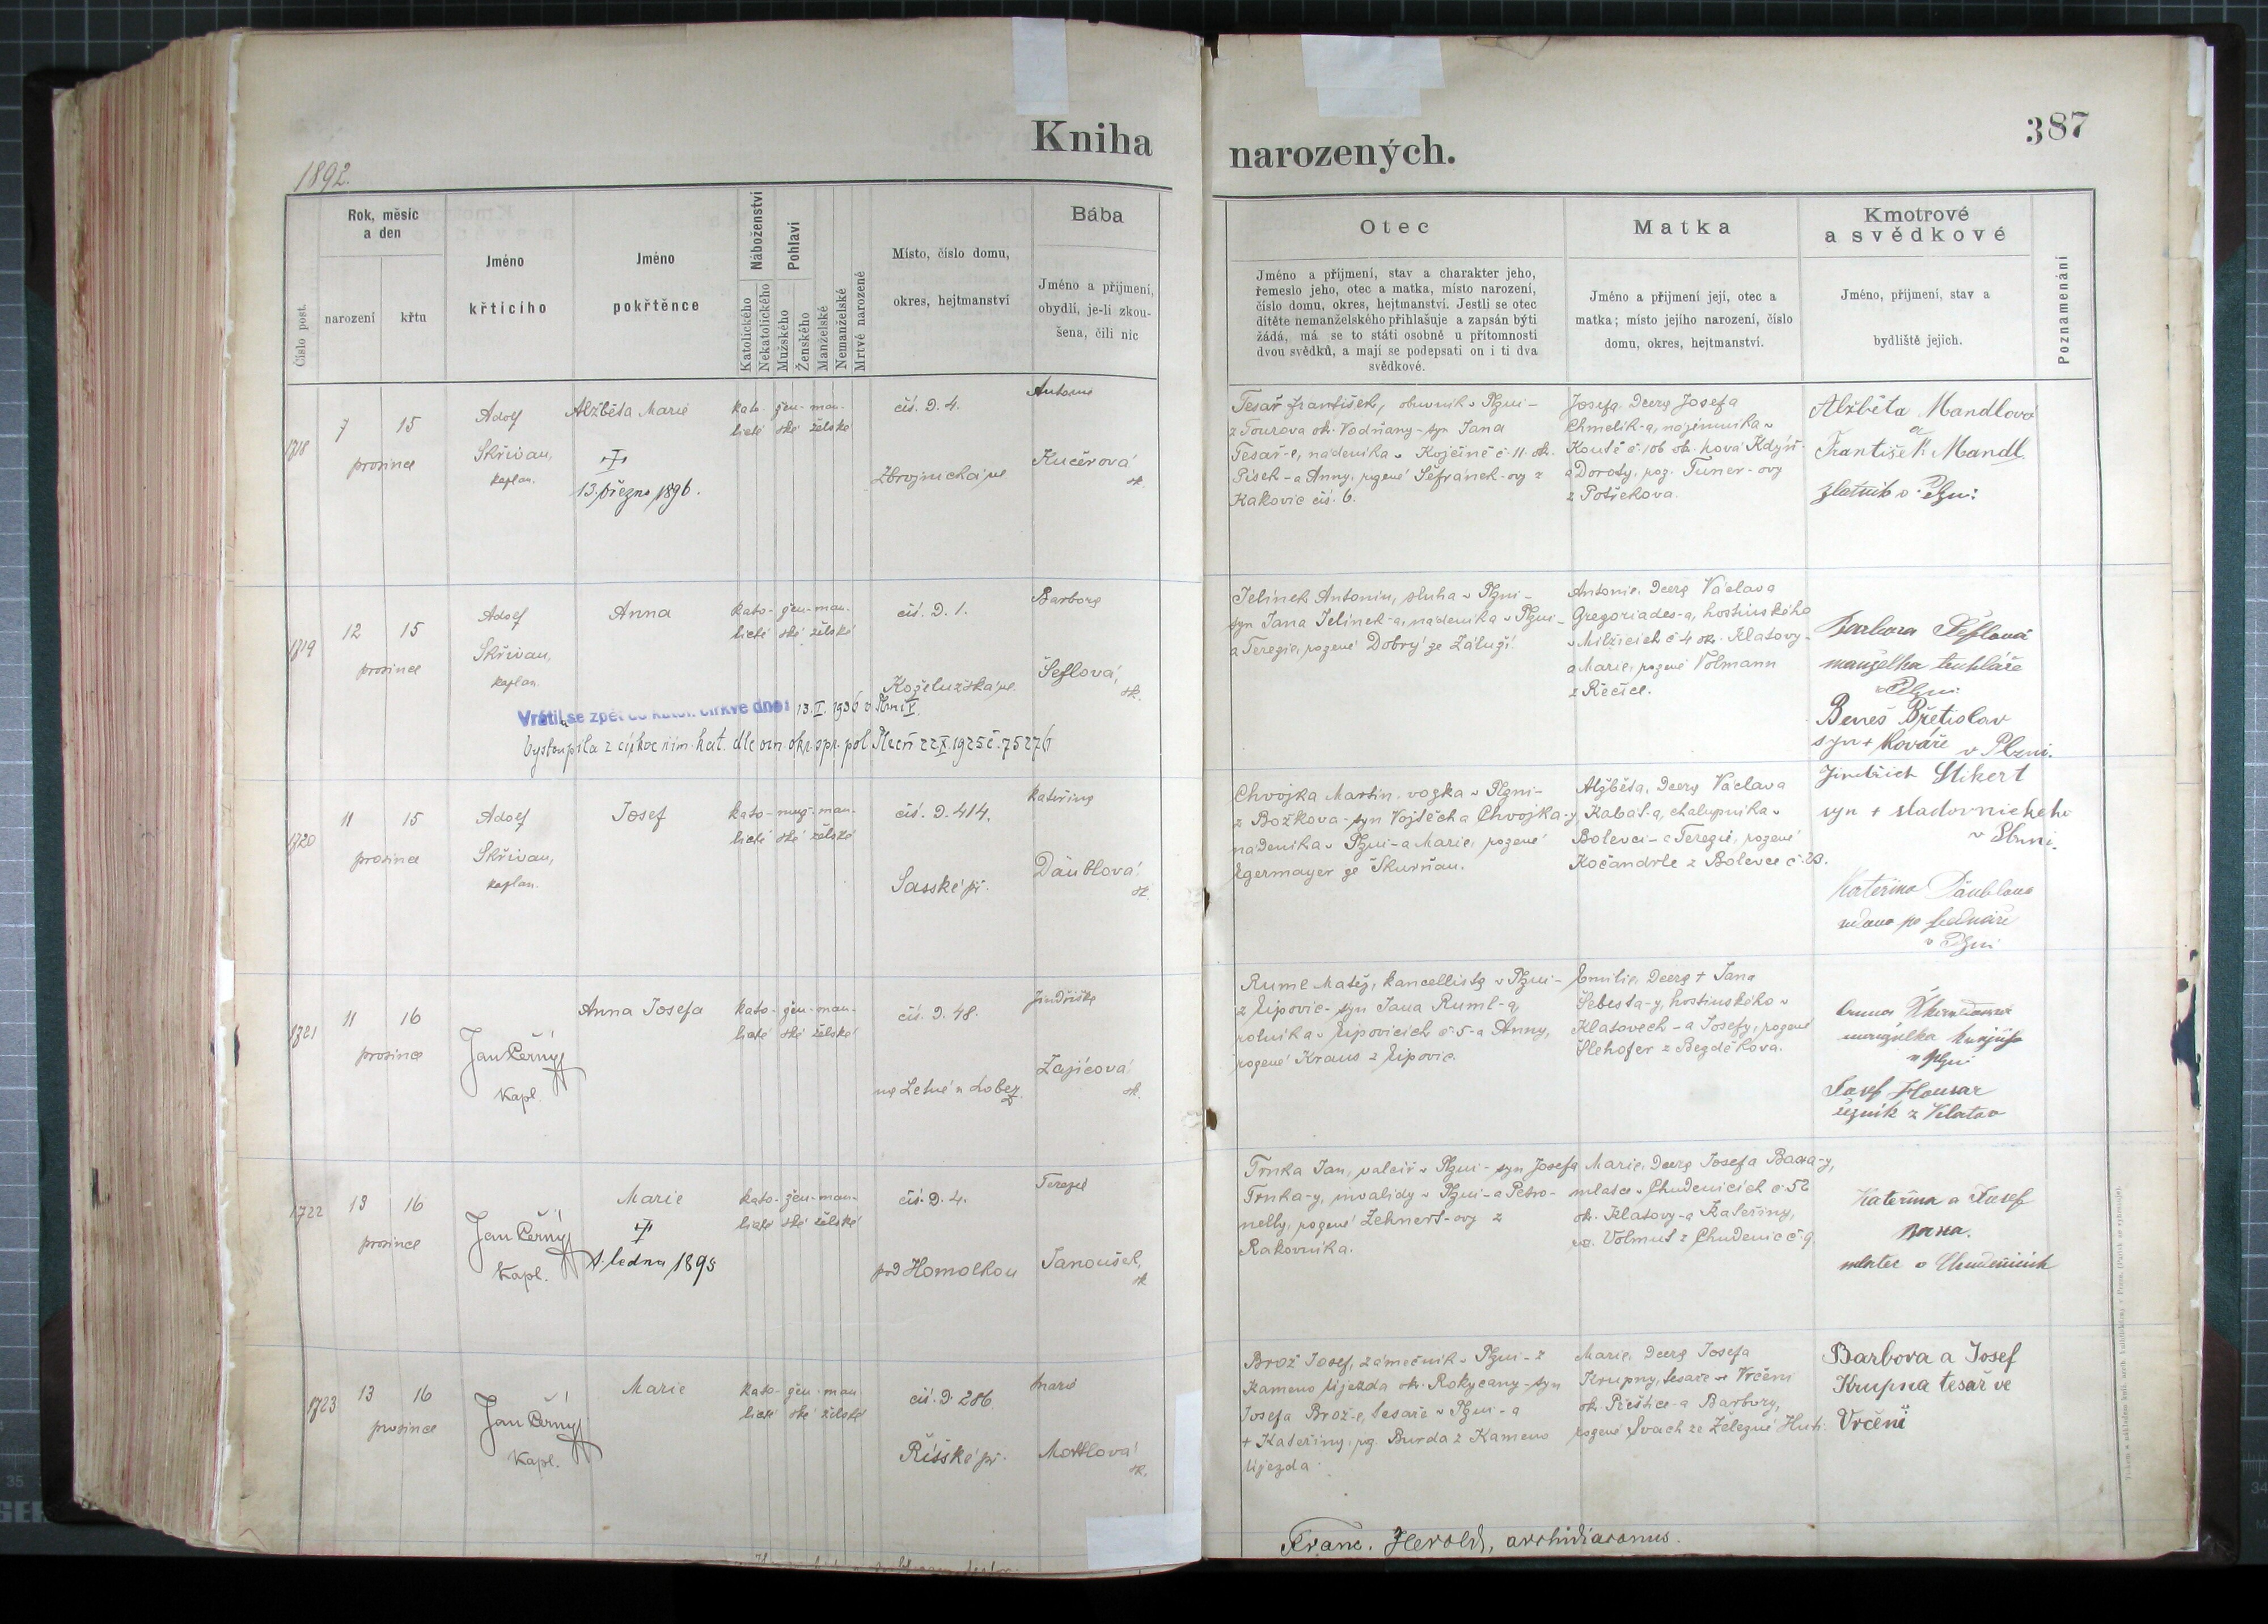 Kniha
narozených.
387
1892.
Číslo post.
Rok, měsíc
a den
narození
křtu
Jméno
křtícího
Jméno
pokřtěnce
Náboženství
Katolického
Nekatolického
Pohlaví
Mužského
Ženského
Manželské
Nemanželské
Mrtvě narozené
Místo, číslo domu,
okres, hejtmanství
Bába
Jméno a příjmení,
obydlí, je-li zkou-
šena, čili nic
Otec
Jméno a příjmení, stav a charakter jeho,
řemeslo jeho, otec a matka, místo narození,
číslo domu, okres, hejtmanství. Jestli se otec
dítěte nemanželského přihlašuje a zapsán býti
žádá, má se to státi osobně u přítomnosti
dvou svědků, a mají se podepsati on i ti dva
svědkové.
Matka
Jméno a příjmení její, otec a
matka; místo jejího narození, číslo
domu, okres, hejtmanství.
Kmotrové
a svědkové
Jméno, příjmení, stav a
bydliště jejich.
Poznamenání
1718
7 15
prosince
Adolf
Skřivan,
kaplan.
Alžběta Marie
13. března 1896.
kato- žen- man-
lické ské želské
čís. D. 4.
Zbrojnická ul
Antonie
Kučerová
zk.
Tesař František, obuvník v Plzni-
z Tourova ok. Vodňany-syn Jana
Tesař-e, nádeníka v Kojčíně č. 11 ok.
Písek-a Anny, rozené Šefránek-ovy z
Kakovic čís. 6.
Josefa, dcera Josefa
Chmelík-a, nájemníka v
Koutě č. 106 ok. Nová Kdýň-
a Doroty, roz. Tuner-ovy
z Potřekova.
Alžběta Mandlová
a
František Mandl
zlatník v Plzni
1719
12 15
prosince
Adolf
Skřivan,
kaplan.
Anna
kato- žen- man-
lické ské želské
čís. D. 1.
Koželužská ul.
Barbora
Šeflová,
zk.
Vrátila se zpět do katol. církve dne: 13. I. 1936 v Plzni V.
Vystoupila z církve řím. kat. dle ozn. okr. spr. pol. Plzeň 22 X. 1925 č. 75276
Jelínek Antonín, sluha v Plzni-
syn Jana Jelínek-a, nádeníka v Plzni-
a Terezie, rozené Dobrý ze Záluží.
Antonie, dcera Václava
Gregoriades-a, hostinského
v Milžicích č 4 ok. Klatovy-
a Marie, rozené Volmann
z Řečice.
Barbora Šeflová
manželka truhláře
v Plzni
Beneš Břetislav
syn + kováře v Plzni.
1720
11 15
prosince
Adolf
Skřivan,
kaplan.
Josef
kato- muž- man-
lické ské želské
čís. D. 414.
Sasské př.
Kateřina
Däublová
zk.
Chvojka Martin, vozka v Plzni-
z Božkova-syn Vojtěcha Chvojka-y,
nádeníka v Plzni-a Marie, rozené
Egermayer ze Skurňan.
Alžběta, dcera Václava
Kabát-a, chalupníka v
Bolevci-a Terezie, rozené
Kočandrle z Bolevce č. 23.
Jindřich Stikert
syn + sladovnického
v Plzni.
Kateřina Däublova
vdova po
v Plzni
1721
11 16
prosince
Jan Černý
Kapl.
Anna Josefa
kato- žen- man-
lické ské želské
čís. D. 48.
na Letné u Lobez
Jindřiška
Zajícová
zk.
Ruml Matěj, kancellista v Plzni-
z Lipovic-syn Jana Ruml-a,
rolníka v Lipovicích č. 5-a Anny,
rozené Kraus z Lipovic.
Emilie, dcera + Jana
Šebesta-y, hostinského v
Klatovech-a Josefy, rozené
Šlehofer z Bezděkova.
Anna
manželka
v Plzni
Josef Housar
řezník z Klatov
1722
13 16
prosince
Jan Černý
Kapl.
Marie
1. ledna 1895
kato- žen- man-
lické ské želské
čís. D. 4.
pod Homolkou
Terezie
Janoušek,
zk
Trnka Jan, valcíř v Plzni-syn Josefa
Trnka-y, invalidy v Plzni-a Petro-
nelly, rozené Zehnert-ovy z
Rakovníka.
Marie, dcera Josefa Baxa-y,
mlatce v Chudenicích č. 52
ok. Klatovy-a Kateřiny,
roz. Volmut z Chudenic č. 9.
Kateřina a Josef
Baxa.
mlatec v Chudenicích
1723
13 16
prosince
Jan Černý
Kapl.
Marie
kato- žen- man-
lické ské želské
čís. D. 286.
Říšské př.
Marie
Mottlová
zk.
Brož Josef, zámečník v Plzni-z
Kameno Újezda ok. Rokycany-syn
Josefa Brož-e, tesaře v Plzni-a
+ Kateřiny, roz. Burda z Kameno
Újezda.
Marie, dcera Josefa
Krupny, tesaře ve Vrčeni
ok. Přeštice-a Barbory,
rozené Švach ze Železné Huti.
Barbora a Josef
Krupna tesař ve
Vrčeni
Franc. Herold, archidiaconus.